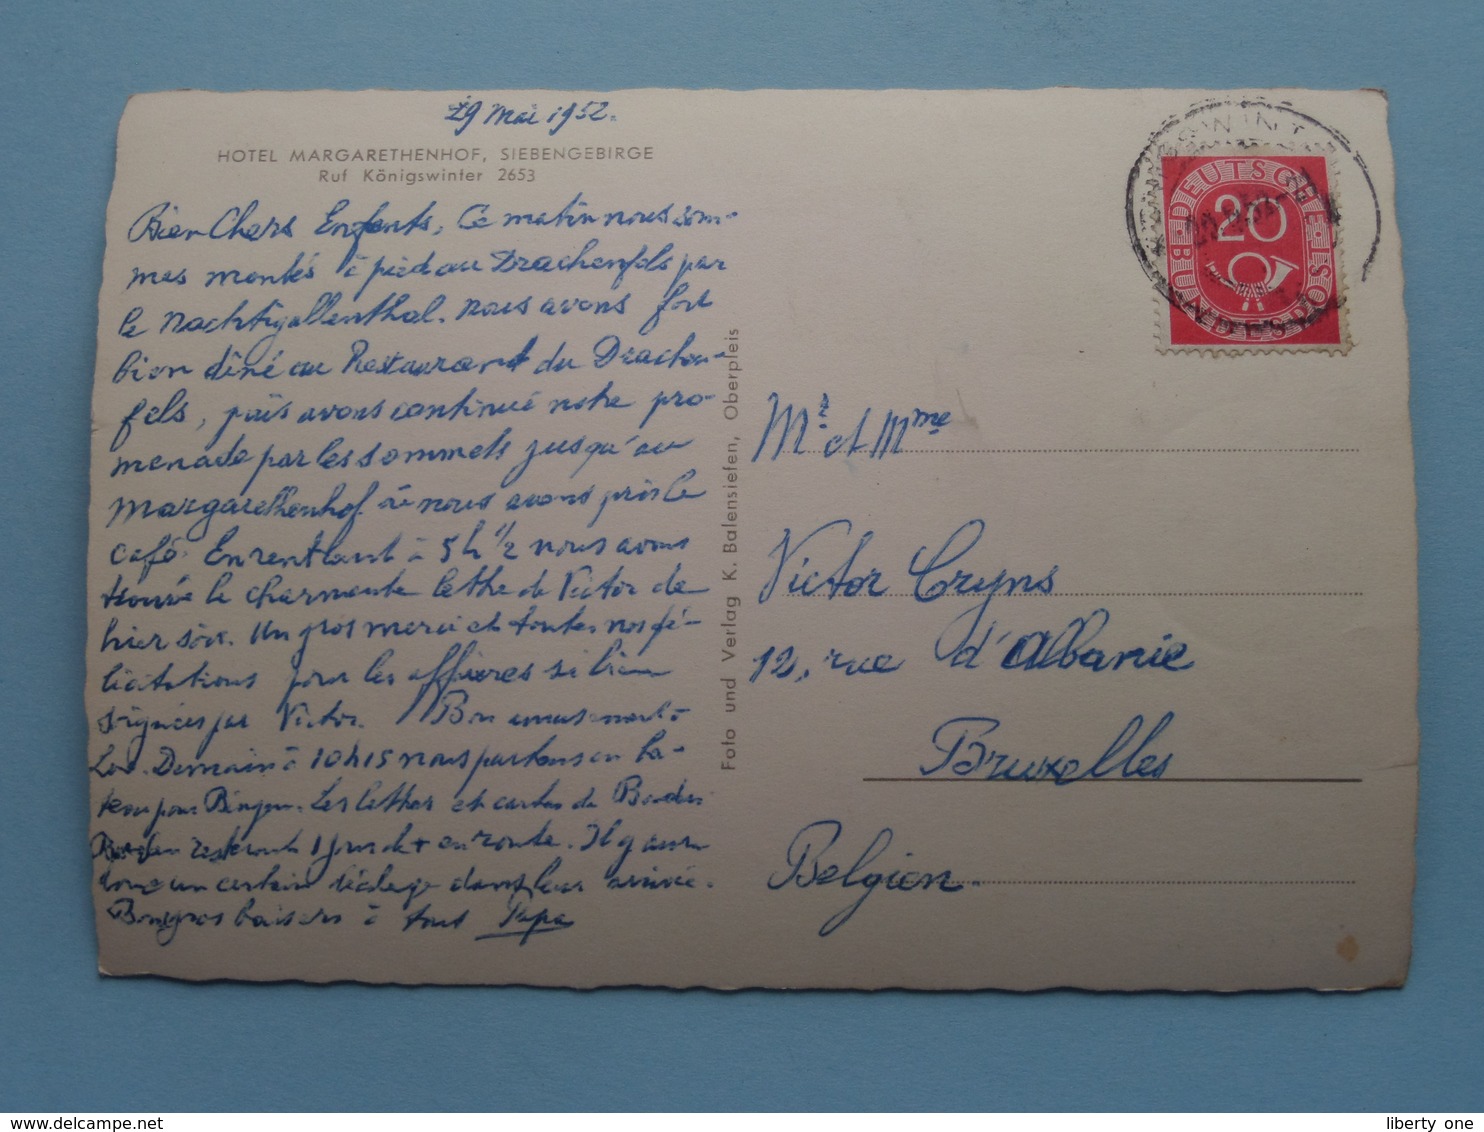 29 Mai 1952.
HOTEL MARGARETHENHOF, SIEBENGEBIRGE
Ruf Königswinter 2653
Bien Chers Enfants, Ce matin nous som-
mes montés à pied au Drachenfels par
le Nachtigallenthal. Nous avons fort
bien dîné au Restaurant du Drachen-
fels, puis avons continué notre pro-
menade par les sommets jusqu'au
Margarethenhof où nous avons pris le
café. En rentrant à 5 h 1/2 nous avons
trouvé la charmante lettre de Victor de
hier soir. Un gros merci et toutes nos fé-
licitations pour les affaires si bien
soignées par Victor. Bon amusement à
Demain à 10 h 15 nous partons en ba-
teau pour Bingen. Les lettres et cartes de
resteront 1 jour de + en route. Il y aura
donc un certain dans leur arrivée.
Bons gros baisers à tous Papa
Foto und Verlag K. Balensiefen, Oberpleis
DEUTSCHE BUNDESPOST
20
Mr et Mme
Victor Cryns
12, rue d'Albanie
Bruxelles
Belgien.
delcampe.net
liberty one